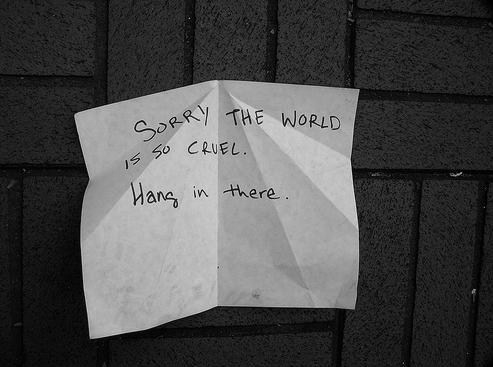 SORRY THE WORLD
IS SO CRUEL.
Hang in there.